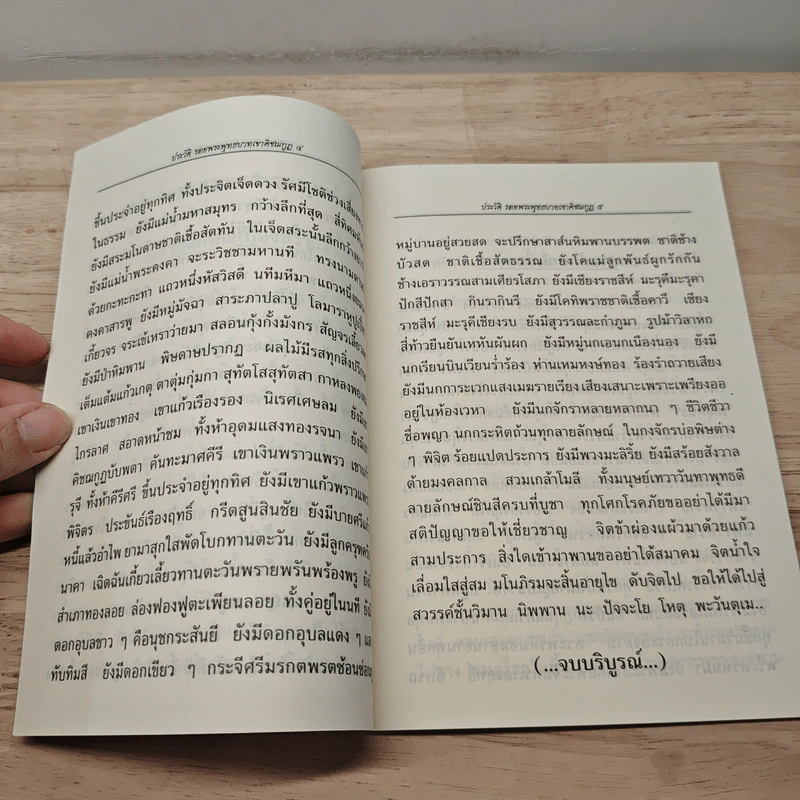 ประวัติ รอยพระพุทธบาทเขาคิชฌกูฏ ๔
ขึ้นประจำอยู่ทุกทิศ ทั้งประจิตเจ็ดดวง รัศมีโชติช่วง
ในธรรม ยังมีแม่น้ำมหาสมุทร กว้างลึกที่สุด
ยังมีสระมโนดาษชาติเชื้อสัตทัน ในเจ็ดสระนั้นลึกกว้าง
ยังมีแม่น้ำพระคงคา จะระวิชชามหานที ทรงนาม
ด้วยกะทะกะทา แถวหนึ่งหัสวิสดี นทีมหีมา แถวหนึ่ง
คงคาสารพู ยังมีหมู่มัจฉา สาระภาปลาปู โลมาราหู
เกี้ยวจร จระเข้เหราว่ายมา สลอนกุ้งกั้งมังกร สัญจร
ยังมีป่าหิมพาน พิษดาษปรากฏ ผลไม้มีรสทุกสิ่ง
เต็มแต้มแก้วเกตุ ตาตุ่มกุ่มกา สุทัตโสสุทัตสา กาหลง
เขาเงินเขาทอง เขาแก้วเรืองรอง นิเรศเศษลม
ไกรลาศ สอาดหน้าชม ทั้งห้าอุดมแสงทองรจนา
คิชฌกูฏบัพตา คันทะมาศคีรี เขาเงินพราวแพรว
รุจี ทั้งห้าคีรีศรี ขึ้นประจำอยู่ทุกทิศ ยังมีเขาแก้ว
พิจิตร ประขันธ์เรืองฤทธิ์ กรีดสูนสินชัย ยังมีบายศรี
หนี้แล้วอำไพ ยามาสุกใสพัดโบกทานตะวัน ยังมีลูก
นาคา เฉิดฉันเกี้ยวเลี้ยวทานตะวันพรายพรันพร้องพรู
สำเภาทองลอย ล่องฟองฟูตะเพียนลอย ทั้งคู่อยู่ในนที
ดอกอุบลขาว ๆ คือนุชกระสันยี ยังมีดอกอุบลแดง ๆ
ทับทิมสี ยังมีดอกเขียว ๆ กระจีศรีมรกตพรตซ้อน
ประวัติ รอยพระพุทธบาทเขาคิชฌกูฏ ๕
หมู่บานอยู่สวยสด จะปรึกษาสาส์นหิมพานบรรพต ชาติช้าง
บัวสด ชาติเชื้อสัตธรรณ ยังโคแม่ลูกพันธ์ผูกรักกัน
ช้างเอราวรรณสามเศียรโสภา ยังมีเชียงราชสีห์ มะรุคีมะรุคา
ปักสีปักสา กินรากินรี ยังมีโคทิพราชชาติเชื้อคาวี เชียง
ราชสีห์ มะรุคีเชียงรบ ยังมีสุวรรณละกำภูมา รูปม้าวิลาหก
สี่ท้าวยืนยันเหหันผันผก ยังมีหมู่นกเอนกเนืองนอง ยังมี
นกเรียนบินเวียนร่ำร้อง ห่านเหมหงษ์ทอง ร้องรำถวายเสียง
ยังมีนกการะเวกแสงเมฆรายเรียง เสียงเสนาะเพราะเพรียงออ
อยู่ในห้องเวหา ยังมีนกจักราหลายหลากนา ๆ ชีวิตชีวา
ชื่อพญา นกกระหิตถ้วนทุกลายลักษณ์ ในกงจักรบ่อพิษต่าง
ๆ พิจิต ร้อยแปดประการ ยังมีพวงมะลิริ้ย ยังมีสร้อยสังวาล
ด้ายมงคลกาล สวมเกล้าโมลี ทั้งมนุษย์เทวาวันทาพุทธดี
ลายลักษณ์ชินสีครบที่บูชา ทุกโศกโรคภัยขออย่าได้มีมา
สติปัญญาขอให้เชี่ยวชาญ จิตช้าผ่องแผ้วมาด้วยแก้ว
สามประการ สิ่งใดเข้ามาพานขออย่าได้สมาคม จิตน้ำใจ
เลื่อมใสสู่สม มโนภิรมจะสิ้นอายุไข ดับจิตไป ขอให้ได้ไปสู่
สวรรค์ชั้นวิมาน นิพพาน นะ ปัจจะโย โหตุ พะวันตุเม..
(...จบบริบูรณ์...)